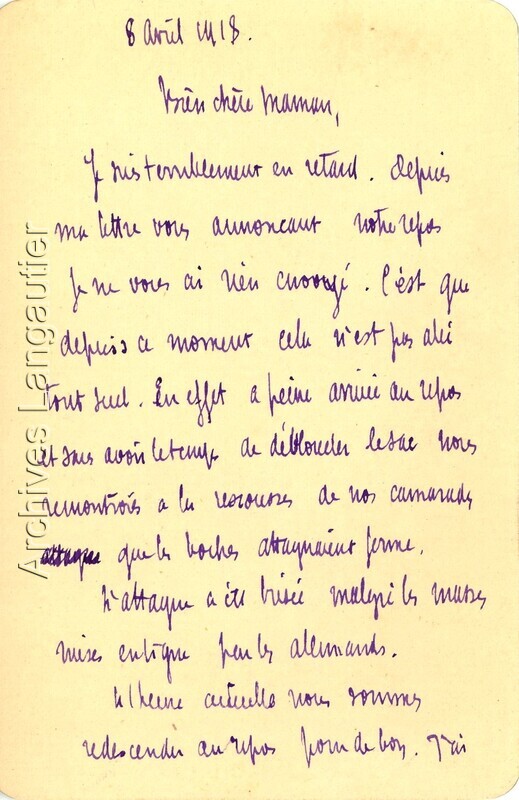 8 avril 1918.
Bien chère Maman,
Je suis terriblement en retard. Depuis
ma lettre vous annoncant notre repos
je ne vous ai rien envoyé. C'est que
depuis ce moment cela n'est pas allé
tout seul. En effet a peine arrivée au repos
et sans avoir le temps de déboucler le sac nous
remontions a la rescousse de nos camarades
attaques que les boches attaquaient ferme.
L'attaque a été brisée malgré les masses
mises en ligne par les allemands.
A l'heure actuelle nous sommes
redescendu au repos pour de bon. J'ai
Archives Langautier